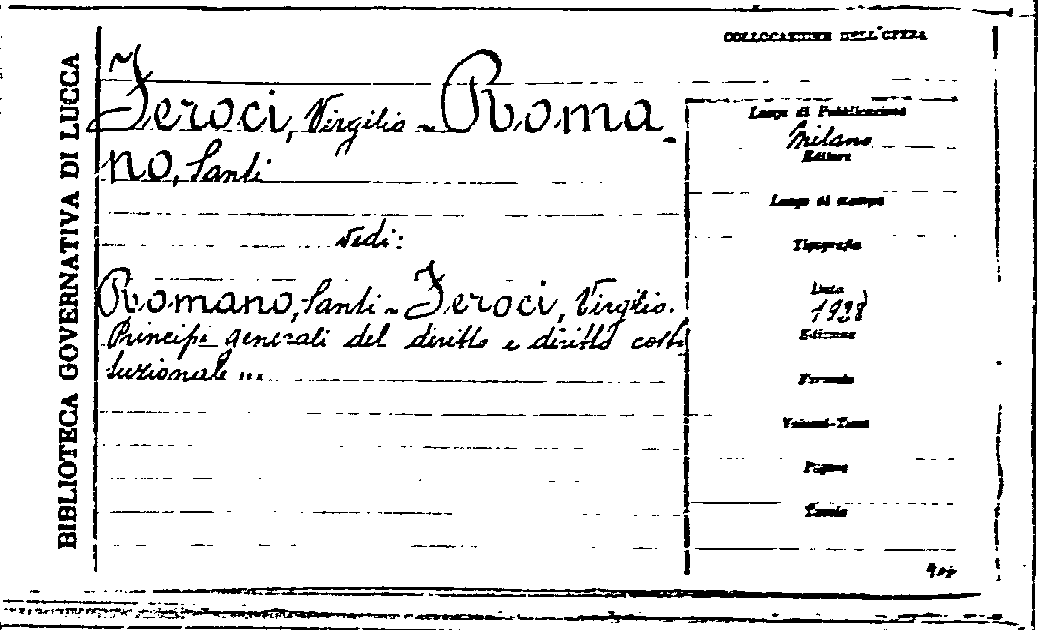 BIBLIOTECA GOVERNATIVA DI LUCCA
COLLOCAZIONE DELL'OPERA
Feroci, Virgilio - Roma-
no, Santi
vedi:
Romano, Santi - Feroci, Virgilio.
Principi generali del diritto e diritto costi
tuzionale ...
Luogo di Pubblicazione
Milano
Editore
Luogo di stampa
Tipografia
Data
1928
Edizione
Formato
Volumi-Tomi
Pagine
Tavole